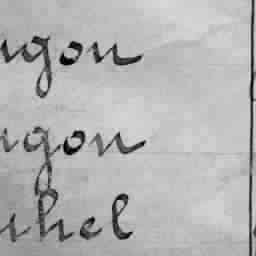 ngon
ngon
uhel